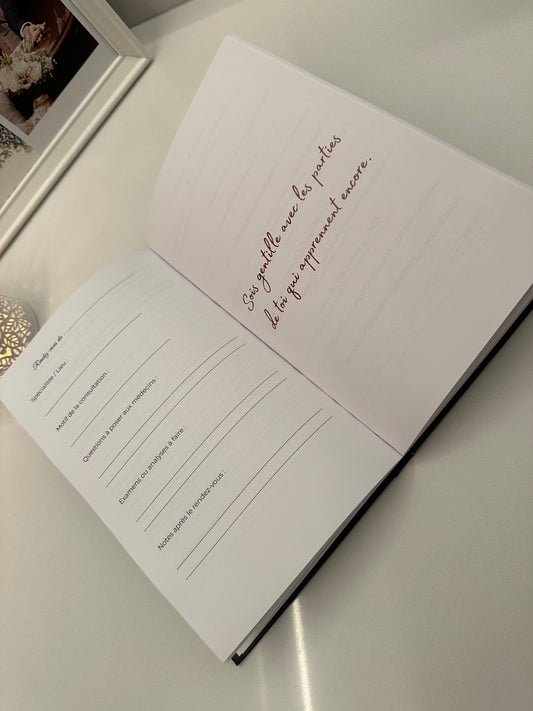 Rendez-vous du :
Spécialiste / Lieu :
Motif de la consultation :
Questions à poser aux médecins :
Examens ou analyses à faire :
Notes après le rendez-vous :
Sois gentille avec les parties
de toi qui apprennent encore.